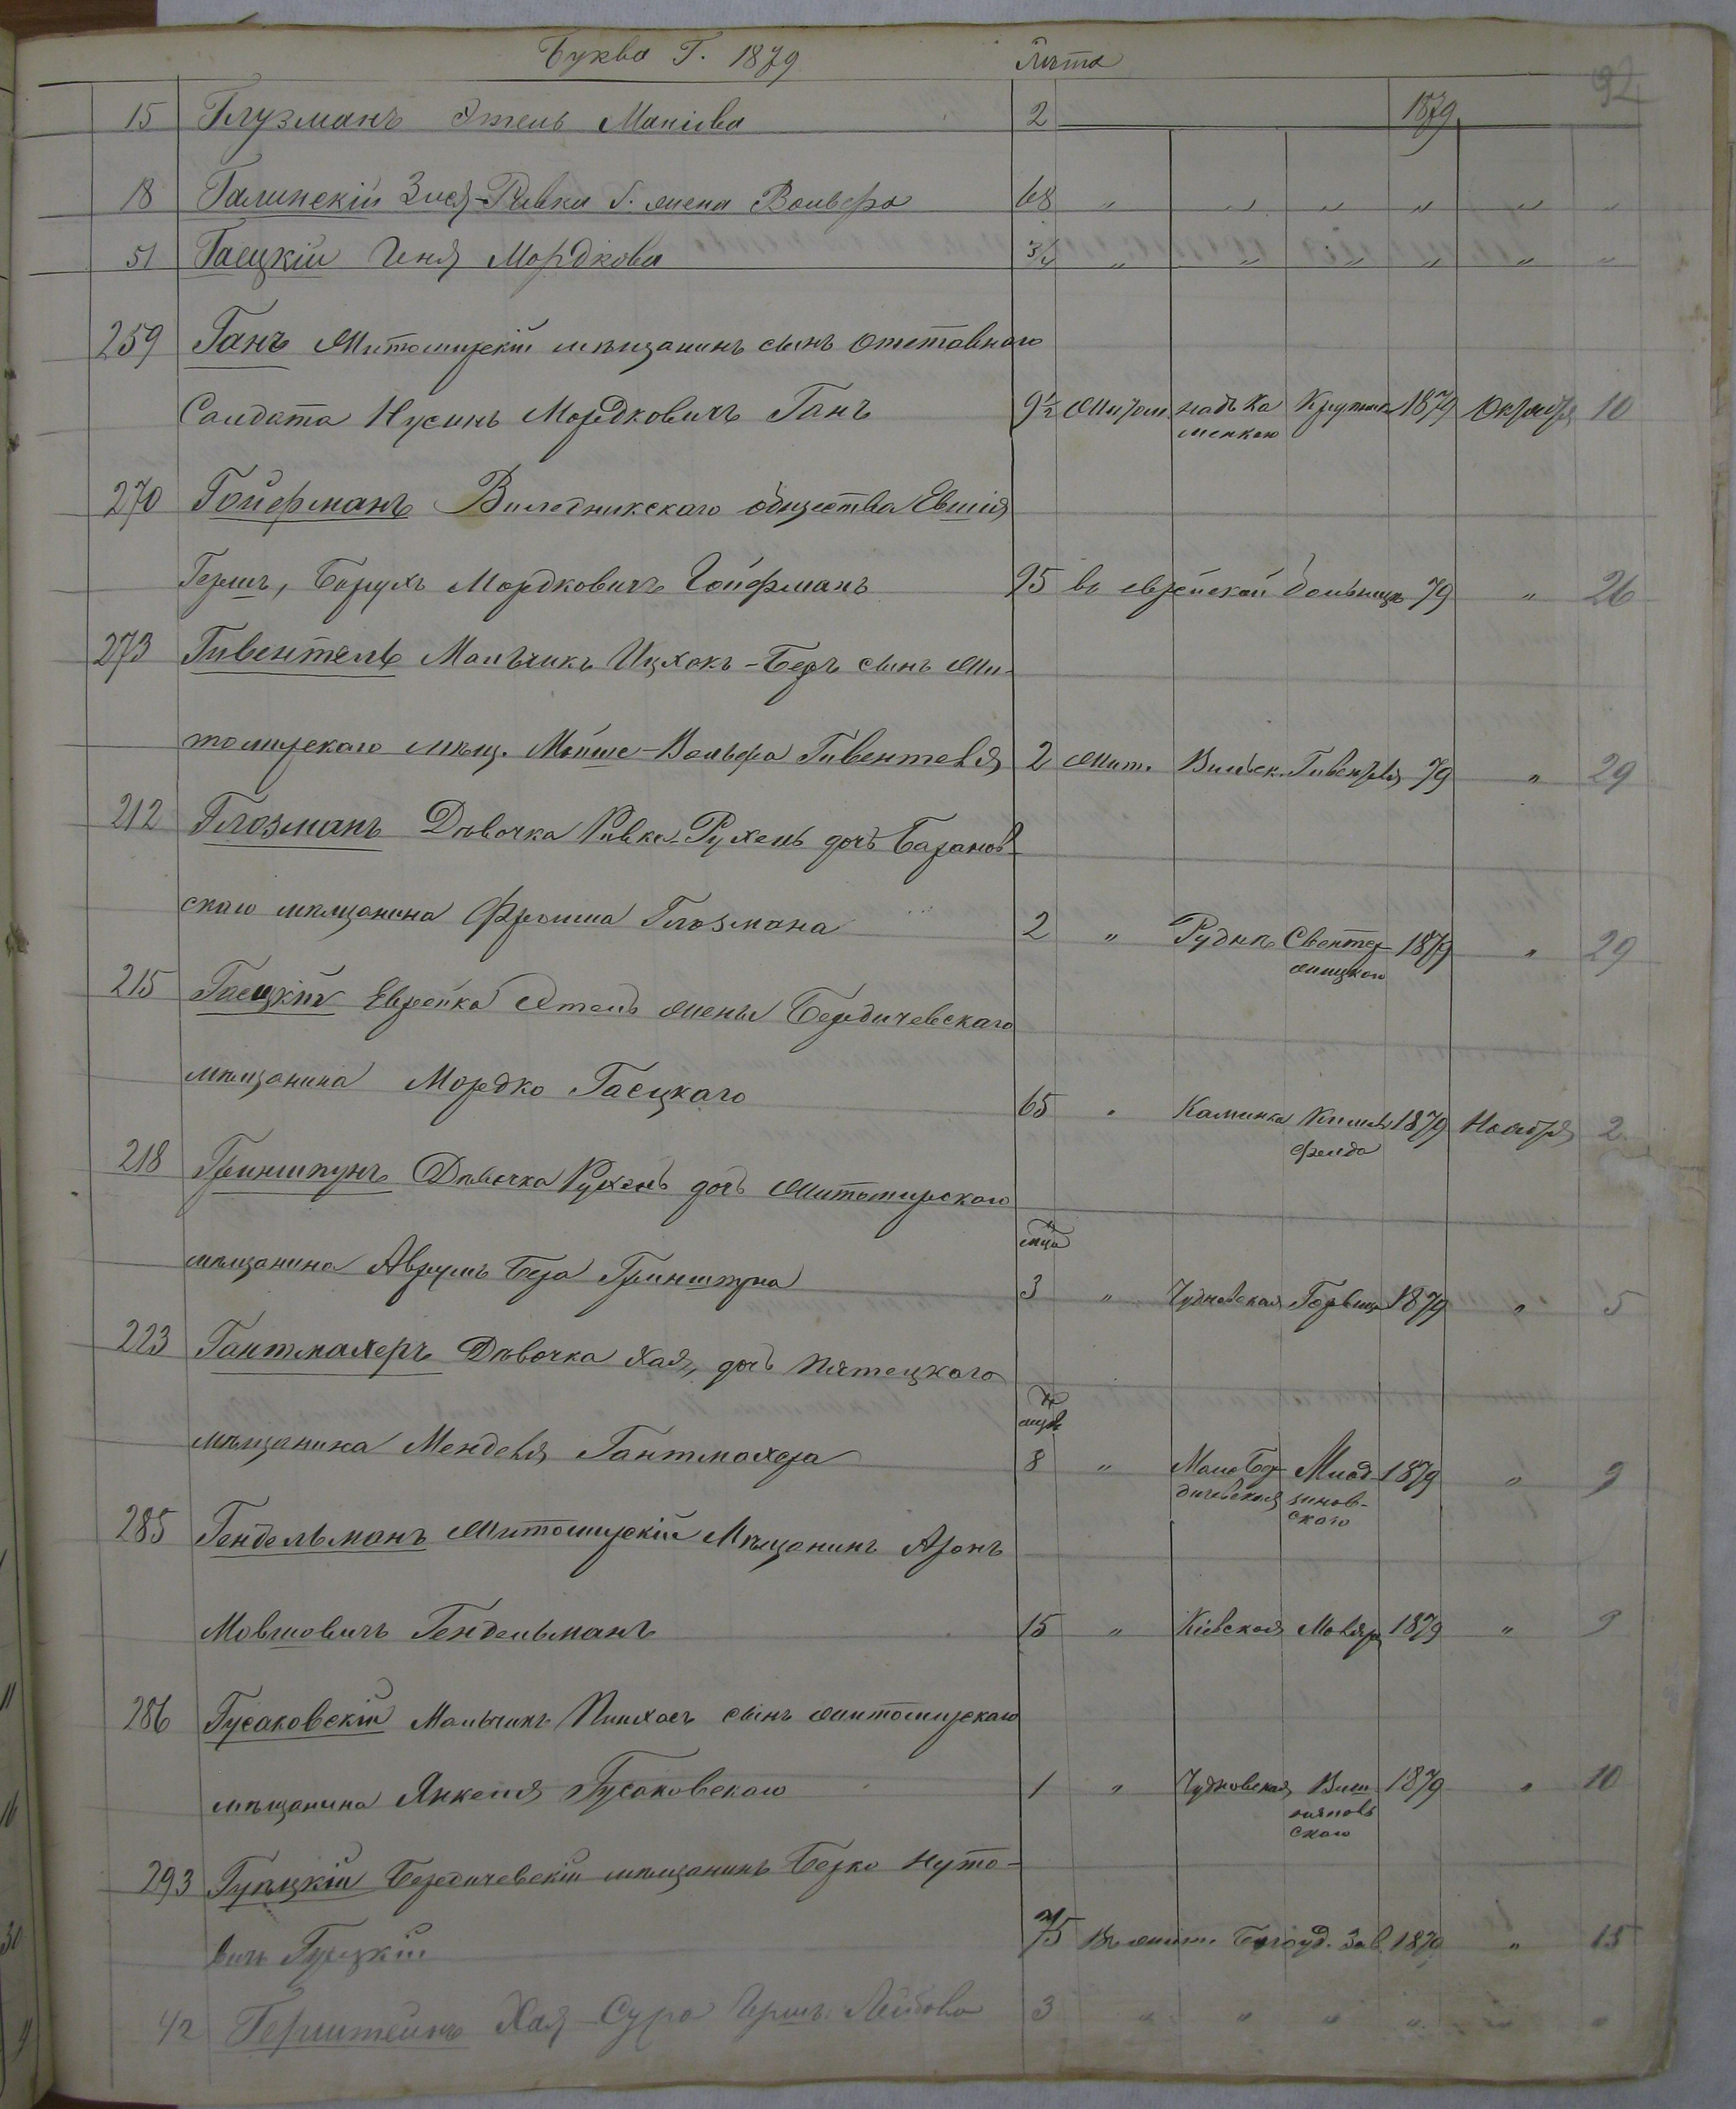 Буква Г. 1879 Лѣта 92
15 Глузманъ Этель Маніова 2 1879
18 Галинскій Зися-Ривка б. жена Вольфа 68 " " " " " "
51 Гаецкій Геня Мордкова 3/4 " " " " " "
259 Ганъ Житомирскій мѣщанинъ сынъ отставнаго
Солдата Нусинъ Мордковичъ Ганъ 9½ Житом. надъ Ка Крупника 1879 Октября 10
менкою
270 Гойфманъ Виледникскаго общества Евшія
Гершъ, Борухъ Мордковичъ Гойфманъ 95 въ еврейской больницѣ 79 " 26
273 Гивентель Мальчикъ Ицхокъ-Беръ сынъ Жи-
томирскаго мѣщ. Мойше-Вольфа Гивентеля 2 Жит. Вильск. Гивентеля 79 " 29
212 Глозманъ Дѣвочка Ривка-Рухель дочь Баранов-
скаго мѣщанина Фроима Глозмана 2 " Рудня Свентер- 1879 " 29
жицкаго
215 Гаецкій Еврейка Этель жена Бердичевскаго
мѣщанина Мордко Гаецкаго 65 " Каминка 1879 Ноября 2
фельда
218 Гриншпунъ Дѣвочка Рухель дочь Житомирскаго
мца
мѣщанина Аврумъ Бера Гриншпуна 3 " Чудновская Горвица 1879 " 5
223 Гантмахеръ Дѣвочка Хая, дочь Пятецкаго
мѣщанина Менделя Гантмахера 8 " Мало Бер- Миод- 1879 " 9
дичевская зинов-
скаго
285 Гендельманъ Житомирскій Мѣщанинъ Аронъ
Мовшовичъ Гендельманъ 15 " Кіевская Моляра 1879 " 9
286 Гусаковскій Мальчикъ Пинхасъ сынъ житомирскаго
мѣщанина Янкеля Гусаковскаго 1 " Чудновская Виш- 1879 " 10
няковъ
скаго
293 Гупецкій Бердичевскій мѣщанинъ Берко Нуто-
вичъ Гупецкій 75 Въ жит. Богоуд. Зав. 1879 " 15
42 Герштейнъ Хая-Сура Гершъ Лейбова 3 " " " " " "